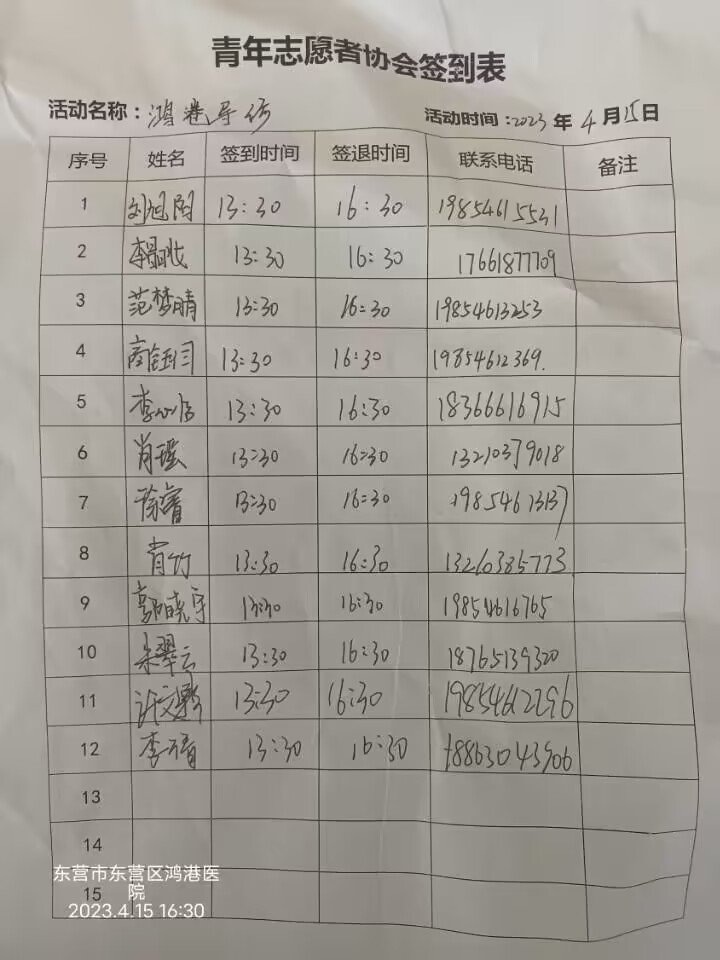 青年志愿者协会签到表
活动名称：鸿港导信 活动时间：2023年4月15日
序号 姓名 签到时间 签退时间 联系电话 备注
1 刘旭阳 13:30 16:30 19854615531
2 李 13:30 16:30 17661877709
3 范梦晴 13:30 16:30 19854613253
4 商钰 13:30 16:30 19854612369.
5 李 13:30 16:30 18366616915
6 肖瑶 13:30 16:30 13210379018
7 徐睿 13:30 16:30 19854613137
8 肖竹 13:30 16:30 13260385773
9 郭晓宇 13:30 16:30 19854616765
10 朱翠云 13:30 16:30 18765139320
11 许文 13:30 16:30 19854612296
12 李 13:30 16:30 18863043906
13
14
15
东营市东营区鸿港医
院
2023.4.15 16:30